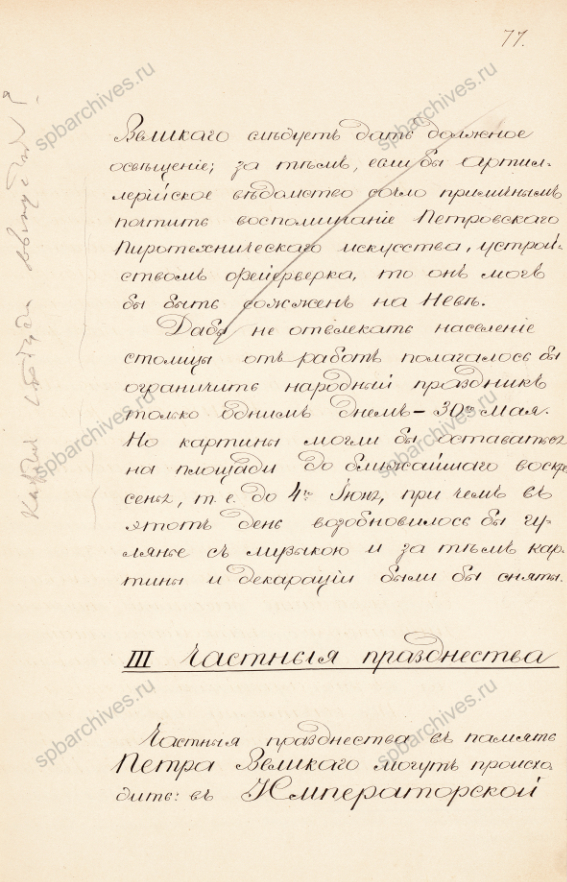 77.
Великаго слѣдуетъ дать должное
освѣщеніе; за тѣмъ, если бы артил-
лерійское вѣдомство сочло приличнымъ
почтить воспоминаніе Петровскаго
Пиротехническаго искусства, устрой-
ствомъ фейерверка, то онъ могъ
бы быть сожженъ на Невѣ.
Дабы не отвлекать населеніе
столицы отъ работъ полагалось бы
ограничить народный праздникъ
только однимъ днемъ – 30го Мая.
Но картины могли бы оставаться
на площади до ближайшаго воскре-
сенья, т. е. до 4го Іюня, при чемъ въ
этотъ день возобновилось бы гу-
лянье съ музыкою и за тѣмъ кар-
тины и декараціи были бы сняты.
III Частныя празднества
Частныя празднества въ память
Петра Великаго могутъ происхо-
дить: въ Императорской
spbarchives.ru
spbarchives.ru
spbarchives.ru
spbarchives.ru
spbarchives.ru
spbarchives.ru
spbarchives.ru
spbarchives.ru